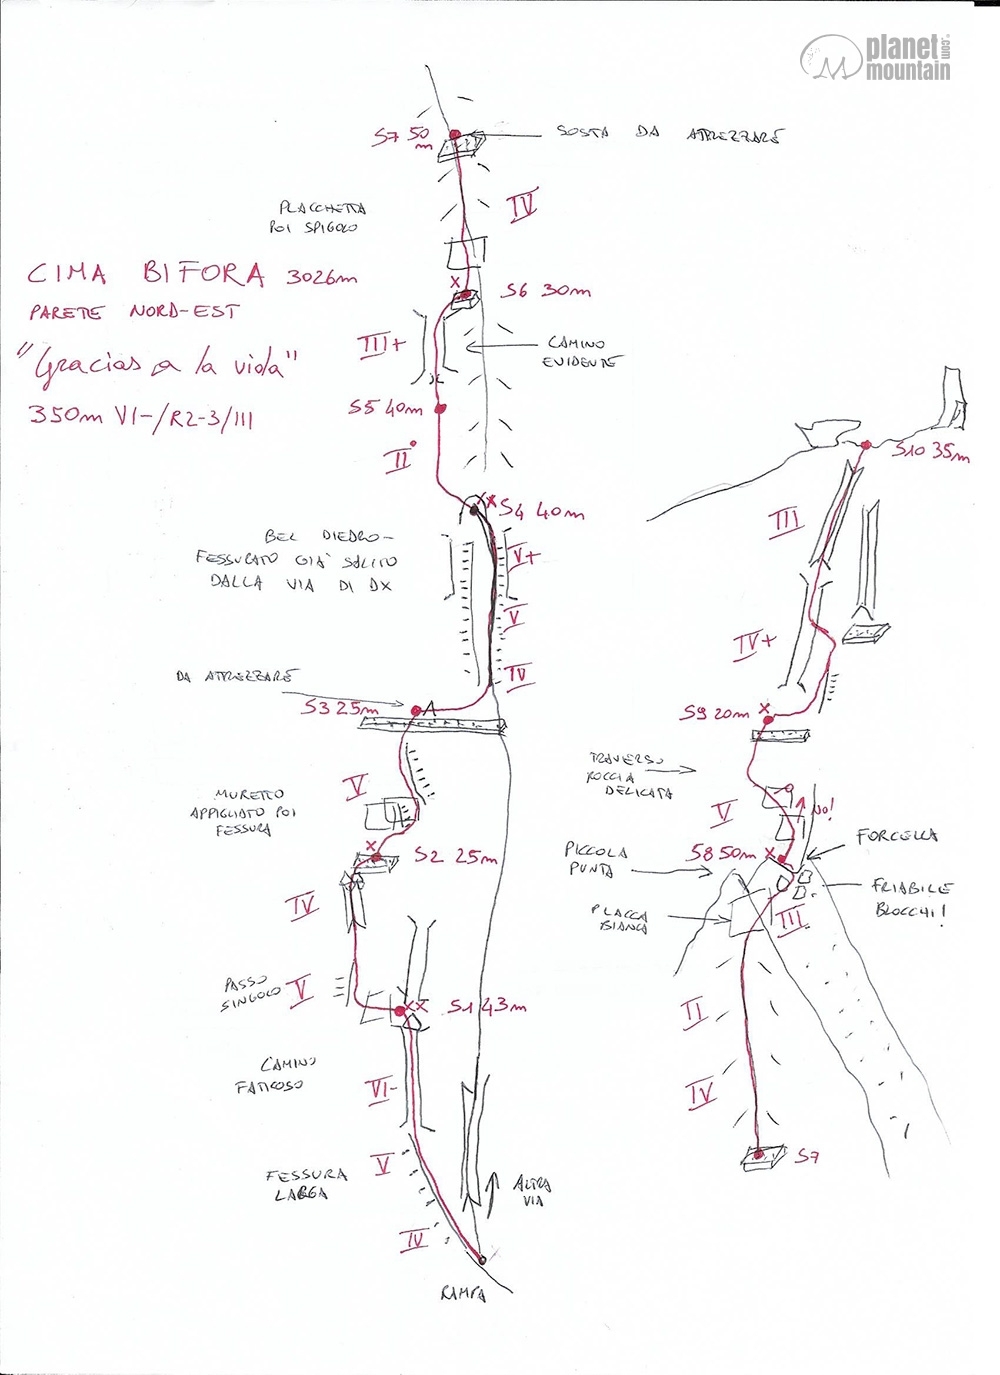 planet
mountain
.com
S7 50
m
SOSTA DA ATTREZZARE
IV
PLACCHETTA
POI SPIGOLO
CIMA BIFORA 3026m
PARETE NORD-EST
"Gracias a la vida"
350m VI-/R2-3/III
X
S6 30m
III+
CAMINO
EVIDENTE
S5 40m
II°
X
S4 40m
BEL DIEDRO-
FESSURATO GIÀ SALITO
DALLA VIA DI DX
V+
V
IV
DA ATTREZZARE
S3 25m
V
MURETTO
APPIGLIATO POI
FESSURA
X
S2 25m
IV
PASSO
SINGOLO
V
XX
S1 43m
CAMINO
FATICOSO
VI-
V
FESSURA
LARGA
IV
ALTRA
VIA
RAMPA
S10 35m
III
IV+
X
S9 20m
TRAVERSO
ROCCIA
DELICATA
V
NO!
X
S8 50m
FORCELLA
PICCOLA
PUNTA
FRIABILE
BLOCCHI!
PLACCA
BIANCA
III
II
IV
S7